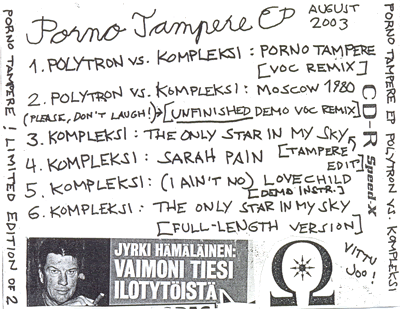 Porno Tampere EP
AUGUST
2003
1. POLYTRON VS. KOMPLEKSI : PORNO TAMPERE
[VOC REMIX]
2. POLYTRON VS. KOMPLEKSI : MOSCOW 1980
(PLEASE, DON'T LAUGH!)→[UNFINISHED DEMO VOC REMIX]
3. KOMPLEKSI : THE ONLY STAR IN MY SKY
[TAMPERE EDIT]
4. KOMPLEKSI : SARAH PAIN
5. KOMPLEKSI : (I AIN'T NO) LOVECHILD
[DEMO INSTR.]
6. KOMPLEKSI : THE ONLY STAR IN MY SKY
[FULL-LENGTH VERSION]
JYRKI HÄMÄLÄINEN:
VAIMONI TIESI
ILOTYTÖISTÄ
Ω
VITTU
JOO!
CD-R Speed-X
PORNO TAMPERE ! LIMITED EDITION OF 2
PORNO TAMPERE EP POLYTRON VS. KOMPLEKSI